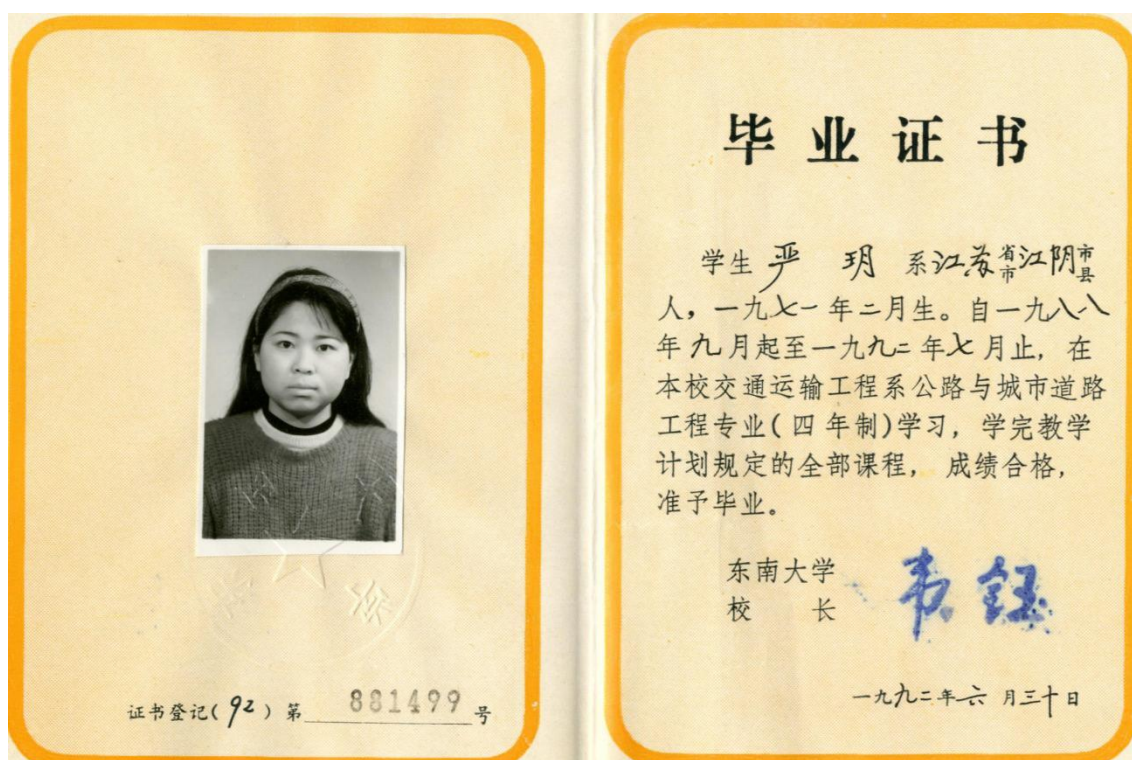 证书登记(92)第 881499 号
毕业证书
学生 严 玥 系江苏省市江阴市县
人，一九七一年二月生。自一九八八
年九月起至一九九二年七月止，在
本校交通运输工程系公路与城市道路
工程专业(四年制)学习，学完教学
计划规定的全部课程，成绩合格，
准予毕业。
东南大学
校 长 韦钰
一九九二年六月三十日